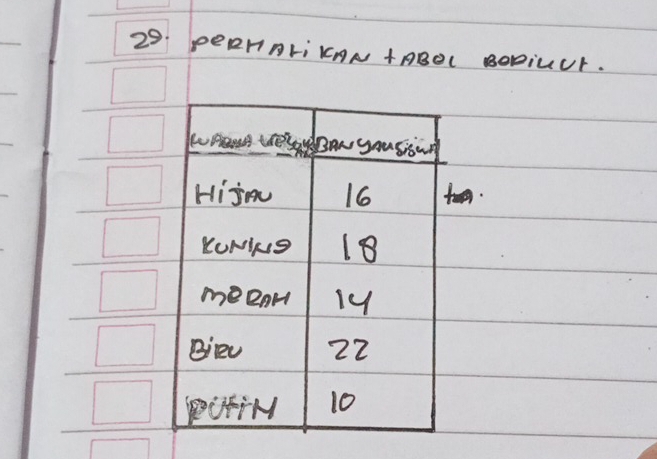 29. PERHATIKAN TABOL BORIKUT.
WARNA BANYAKSISWA
HIJAU 16
KUNING 18
MERAH 14
BIRU 22
PUTIH 10